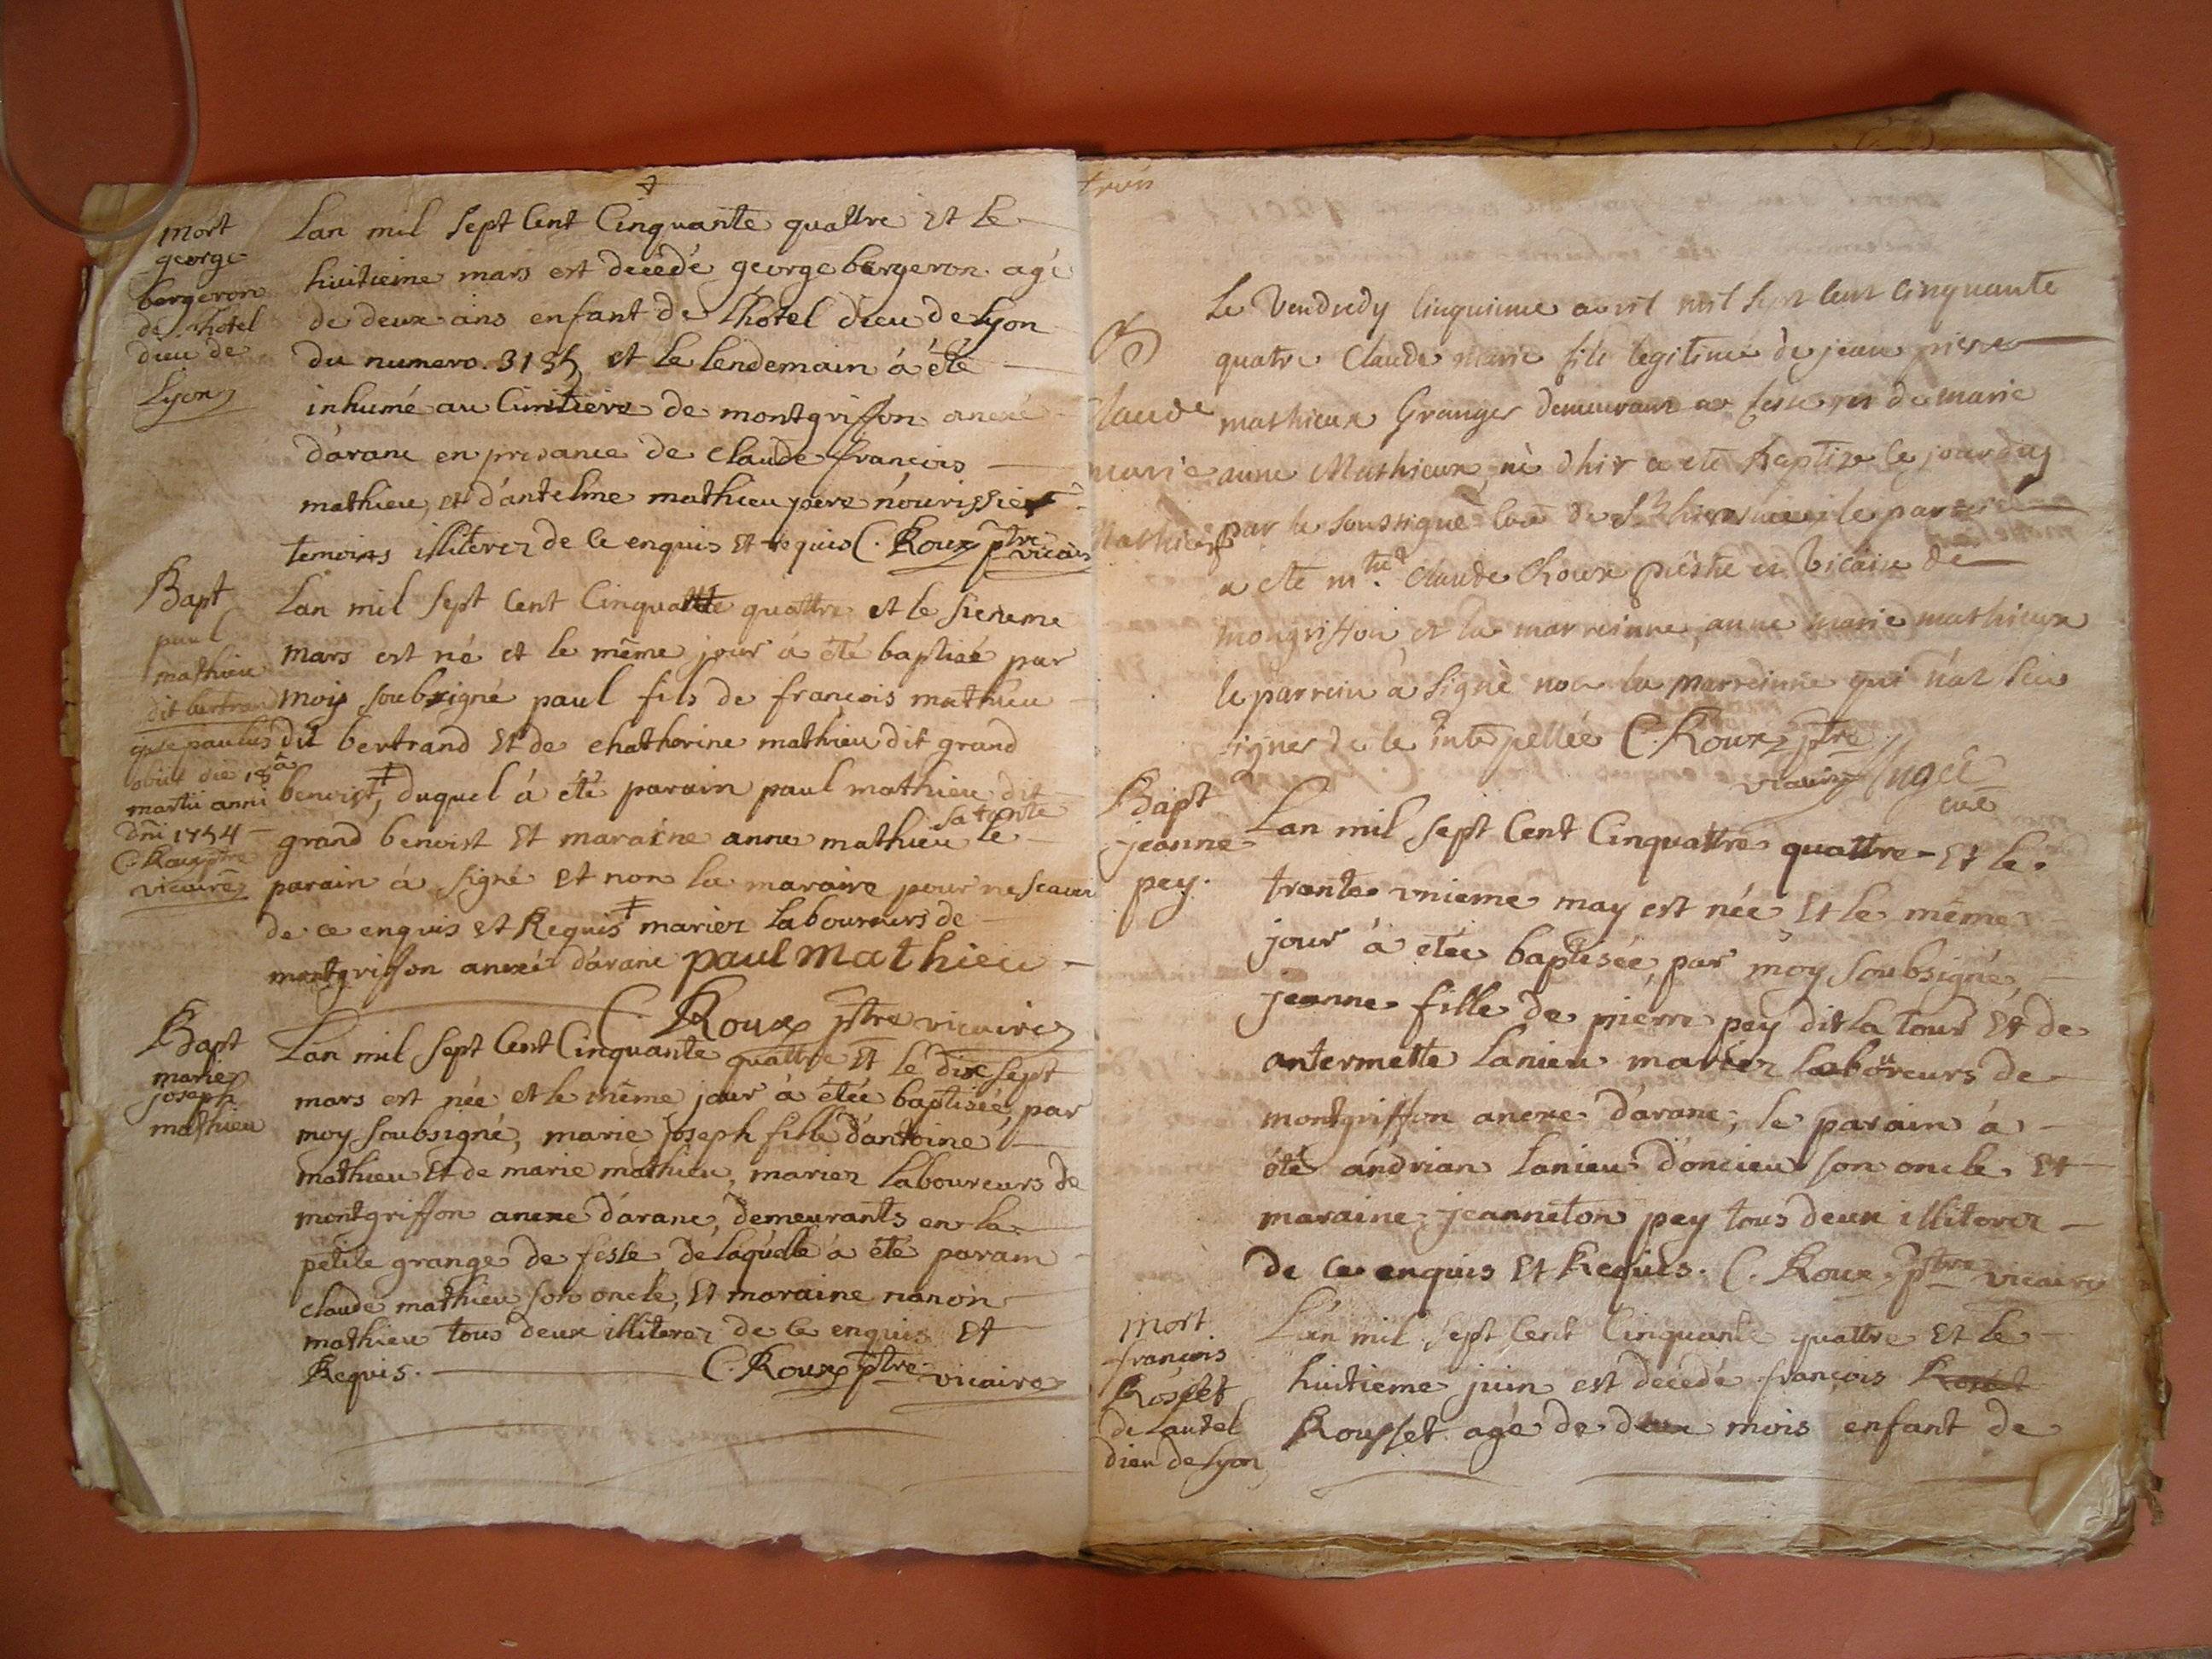 mort
george
bergeron
de l'hotel
dieu de
Lyon
Lan mil sept Cent Cinquante quattre Et le
huitieme mars est decédé george bergeron agé
de deux ans enfant de l'hotel dieu de Lyon
du numero. et le lendemain á été
inhumé au Cimitiere de montgriffon anexé
d'aranc en presance de Claude françois
mathieu, et d'antelme mathieu pere nourissier
temoins illiterez de Ce enquis Et requis C. Roux ptre vicaire
Bapt
paul
mathieu
dit bertrand
qui paulus
obiit die 18â
martii anni
dni 1754
C. Roux ptre
vicaire
Lan mil sept Cent Cinquatte quattre et le sieieme
mars est né et le même jour á été baptisé par
moy soubsigné paul fils de françois mathieu
dit bertrand Et de chatherine mathieu dit grand
benoist, duquel á été parain paul mathieu dit
sa tante
grand benoist Et maraine anne mathieu le
parain á signé et non la maraine pour ne scavoir
de ce enquis et Requis marier laboureurs de
montgriffon anexé d'aranc paul Mathieu
C. Roux ptre vicaire
Bapt
marie
joseph
mathieu
Lan mil sept Cent Cinquante quattre Et le dix sept
mars est née et le même jour á étée baptisée, par
moy soubsigné, marie joseph fille d'antoine
mathieu Et de marie mathieu, mariez laboureurs de
montgriffon anexe d'aranc, demeurants en la
petite grange de fesle, de laquelle á été parain
claude mathieu son oncle, Et maraine nanon
mathieu tous deux illiterez de Ce enquis Et
Requis. C. Roux ptre vicaire
Claude
marie
Mathieu
Le Vendredy Cinquieme avril mil sept cent Cinquante
quatre Claude Marie fils legitime de jean pierre
mathieux Granger demeurant a fesle et de marie
anne Mathieux, né d'hier a eté Baptizé ce jourdhuy
par le soussigné Curé de le parrein
a eté Claude Roux prestre et Vicaire de
mongriffon et la marreinne, anne marie mathieux
le parrein a signé non la marreinne qui n'at sceu
signer de ce interpellée C. Roux ptre
vicaire curé
Bapt
jeanne
pey.
Lan mil sept Cent Cinquattre quattre Et le
trante vnieme may est née Et le même
jour á étée baptisée, par moy soubsigné,
jeanne fille de pierre pey dit la tour Et de
antermette Lanieu mariez laboureurs de
montgriffon anexe d'aranc; le parain á
été andrian Lanieu d'oncieu son oncle Et
maraine jeanneton pey tous deux illiterez
de Ce enquis Et Requis. C. Roux. ptre vicaire
mort
françois
Rosset
de Lautel
dieu de Lyon
L'an mil sept Cent Cinquante quattre Et le
huitieme juin est decédé françois
Rousset agé de deux mois enfant de